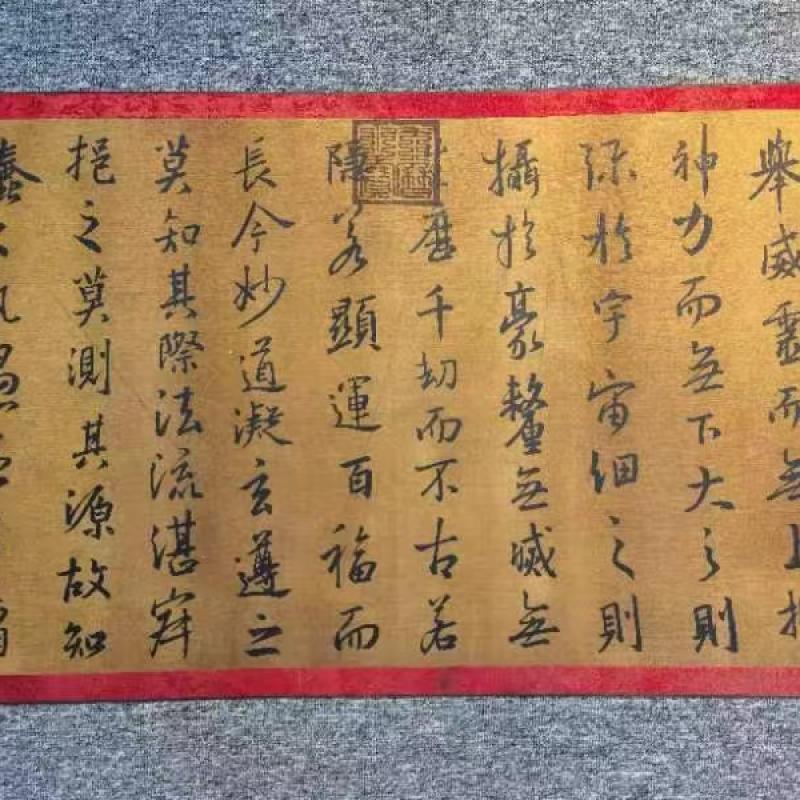 舉威靈而無上
神力而無下大之則
弥於宇宙細之則
攝於豪釐無滅無
歷千劫而不古若
隱若顯運百福而
長今妙道凝玄遵之
莫知其際法流湛寂
挹之莫測其源故知
蠢